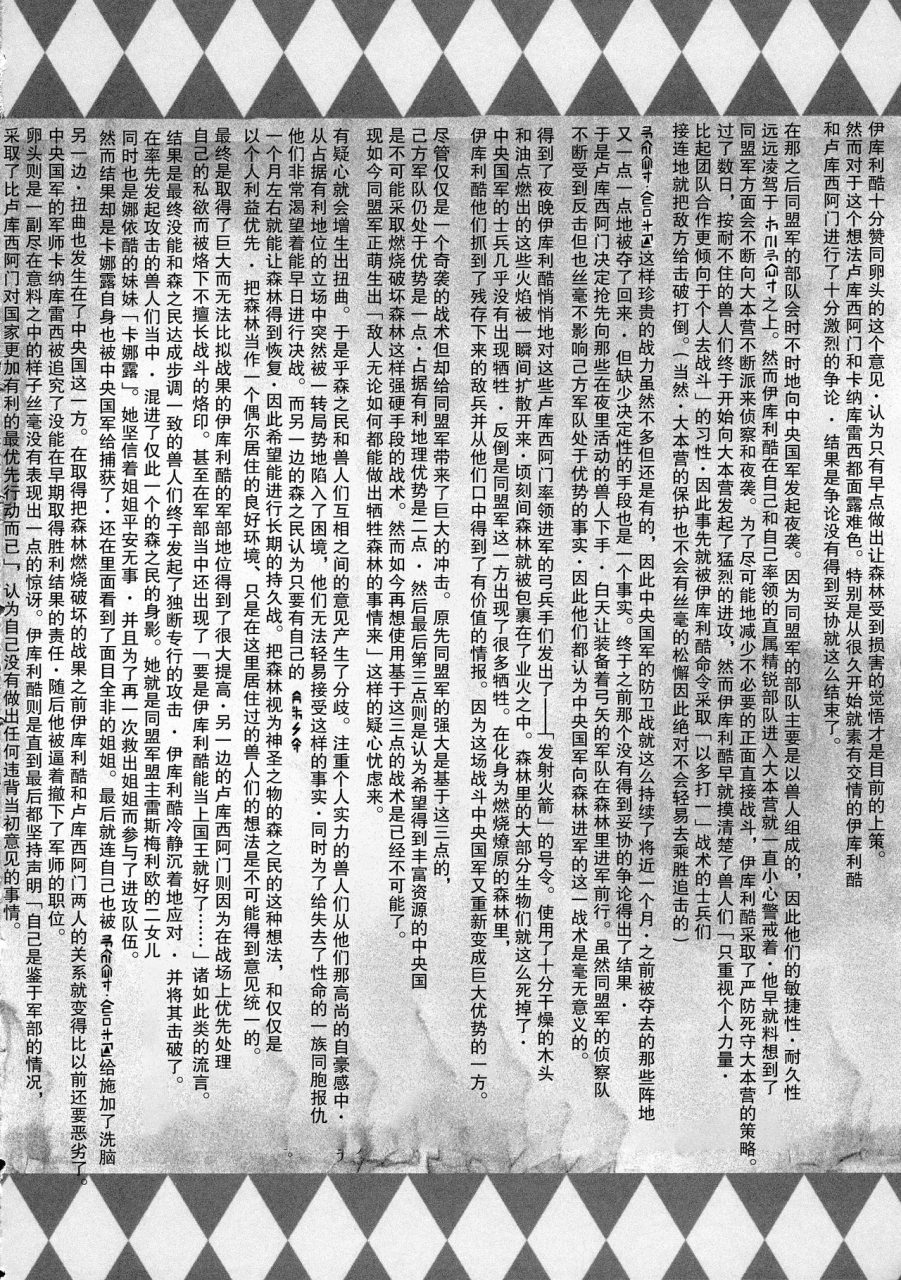 伊库利酷十分赞同卵头的这个意见·认为只有早点做出让森林受到损害的觉悟才是目前的上策。
然而对于这个想法卢库西阿门和卡纳库雷西都面露难色。特别是从很久开始就素有交情的伊库利酷
和卢库西阿门进行了十分激烈的争论·结果是争论没有得到妥协就这么结束了。
在那之后同盟军的部队会时不时地向中央国军发起夜袭。因为同盟军的部队主要是以兽人组成的，因此他们的敏捷性·耐久性
远远凌驾于 之上。然而伊库利酷在自己和自己率领的直属精锐部队进入大本营就一直小心警戒着·他早就料想到了
同盟军方面会不断向大本营不断派来侦察和夜袭。为了尽可能地减少不必要的正面直接战斗，伊库利酷采取了严防死守大本营的策略。
过了数日，按耐不住的兽人们终于开始向大本营发起了猛烈的进攻，然而伊库利酷早就摸清楚了兽人们「只重视个人力量·
比起团队合作更倾向于个人去战斗」的习性·因此事先就被伊库利酷命令采取「以多打一」战术的士兵们
接连地就把敌方给击破打倒。(当然·大本营的保护也不会有丝毫的松懈因此绝对不会轻易去乘胜追击的)
这样珍贵的战力虽然不多但还是有的，因此中央国军的防卫战就这么持续了将近一个月·之前被夺去的那些阵地
又一点一点地被夺了回来·但缺少决定性的手段也是一个事实。终于之前那个没有得到妥协的争论得出了结果·
于是卢库西阿门决定抢先向那些在夜里活动的兽人下手·白天让装备着弓矢的军队在森林里进军前行。虽然同盟军的侦察队
不断受到反击但也丝毫不影响己方军队处于优势的事实·因此他们都认为中央国军向森林进军的这一战术是毫无意义的。
得到了夜晚伊库利酷悄悄地对这些卢库西阿门率领进军的弓兵手们发出了——「发射火箭」的号令。使用了十分干燥的木头
和油点燃出的这些火焰被一瞬间扩散开来·顷刻间森林就被包裹在了业火之中。森林里的大部分生物们就这么死掉了·
中央国军的士兵几乎没有出现牺牲·反倒是同盟军这一方出现了很多牺牲。在化身为燃烧燎原的森林里，
伊库利酷他们抓到了残存下来的敌兵并从他们口中得到了有价值的情报。因为这场战斗中央国军又重新变成巨大优势的一方。
尽管仅仅是一个奇袭的战术但却给同盟军带来了巨大的冲击。原先同盟军的强大是基于这三点的，
己方军队仍处于优势是一点·占据有利地理优势是二点·然后最后第三点则是认为希望得到丰富资源的中央国
是不可能采取燃烧破坏森林这样强硬手段的战术。然而如今再想使用基于这三点的战术是已经不可能了。
现如今同盟军正萌生出「敌人无论如何都能做出牺牲森林的事情来」这样的疑心忧虑来。
有疑心就会增生出扭曲。于是乎森之民和兽人们互相之间的意见产生了分歧。注重个人实力的兽人们从他们那高尚的自豪感中·
从占据有利地位的立场中突然被一转局势地陷入了困境，他们无法轻易接受这样的事实·同时为了给失去了性命的一族同胞报仇
他们非常渴望着能早日进行决战。而另一边的森之民认为只要有自己的
一个月左右就能让森林得到恢复·因此希望能进行长期的持久战。把森林视为神圣之物的森之民的这种想法，和仅仅是
以个人利益优先·把森林当作一个偶尔居住的良好环境、只是在这里居住过的兽人们的想法是不可能得到意见统一的。
最终是取得了巨大而无法比拟战果的伊库利酷的军部地位得到了很大提高·另一边的卢库西阿门则因为在战场上优先处理
自己的私欲而被烙下不擅长战斗的烙印。甚至在军部当中还出现了「要是伊库利酷能当上国王就好了……」诸如此类的流言。
结果是最终没能和森之民达成步调一致的兽人们终于发起了独断专行的攻击·伊库利酷冷静沉着地应对·并将其击破了。
在率先发起攻击的兽人们当中·混进了仅此一个的森之民的身影。她就是同盟军盟主雷斯梅利欧的二女儿
同时也是娜依酷的妹妹「卡娜露」。她坚信着姐姐平安无事·并且为了再一次救出姐姐而参与了进攻队伍。
然而结果却是卡娜露自身也被中央国军给捕获了·还在里面看到了面目全非的姐姐。最后就连自己也被 给施加了洗脑
另一边·扭曲也发生在了中央国这一方。在取得把森林燃烧破坏的战果之前伊库利酷和卢库西阿门两人的关系就变得比以前还要恶劣了。
中央国军的军师卡纳库雷西被追究了没能在早期取得胜利结果的责任·随后他被逼着撤下了军师的职位。
卵头则是一副尽在意料之中的样子丝毫没有表现出一点的惊讶。伊库利酷则是直到最后都坚持声明「自己是鉴于军部的情况，
采取了比卢库西阿门对国家更加有利的最优先行动而已」，认为自己没有做出任何违背当初意见的事情。